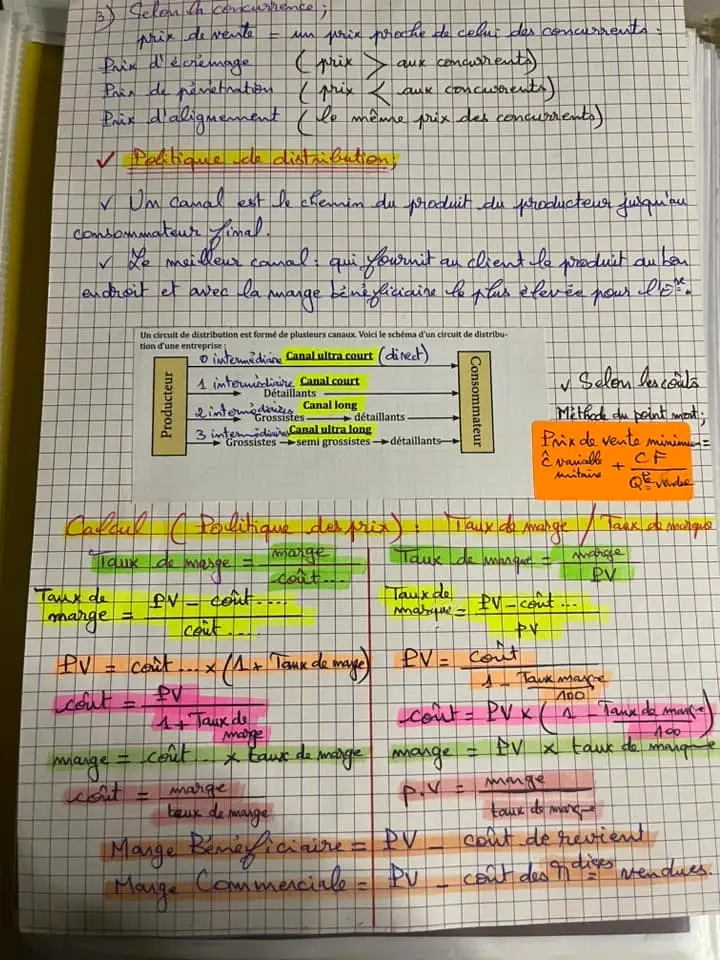 3) Selon la concurrence ;
prix de vente = un prix proche de celui des concurrents.
Prix d'écrémage ( prix > aux concurrents)
Prix de pénétration ( prix < aux concurrents)
Prix d'alignement ( le même prix des concurrents)
✓ Politique de distribution ;
✓ Un canal est le chemin du produit du producteur jusqu'au
consommateur final.
✓ Le meilleur canal : qui fournit au client le produit au bon
endroit et avec la marge bénéficiaire le plus élevée pour l'Ese.
Un circuit de distribution est formé de plusieurs canaux. Voici le schéma d'un circuit de distribu-
tion d'une entreprise :
Producteur
0 intermédiaire Canal ultra court (direct)
1 intermédiaire Canal court
Détaillants
2 intermédiaires Canal long
Grossistes détaillants
3 intermédiaires Canal ultra long
Grossistes semi grossistes détaillants
Consommateur
✓ Selon les coûts
Méthode du point mort ;
Prix de vente minimum =
c̑ variable unitaire + CF / Qté vendue
Calcul ( Politique des prix) : Taux de marge / Taux de marque
Taux de marge = marge / coût...
Taux de marge = PV - coût.... / coût....
PV = coût ... x (1 + Taux de marge)
coût = PV / 1 + Taux de marge
marge = coût... x taux de marge
coût = marge / taux de marge
Taux de marque = marge / PV
Taux de marque = PV - coût ... / PV
PV = coût / 1 - Taux marque / 100
coût = PV x ( 1 - Taux de marque / 100 )
marge = PV x taux de marque
P.V = marge / taux de marque
Marge Bénéficiaire = PV - coût de revient
Marge Commerciale = PV - coût des m dises vendues.